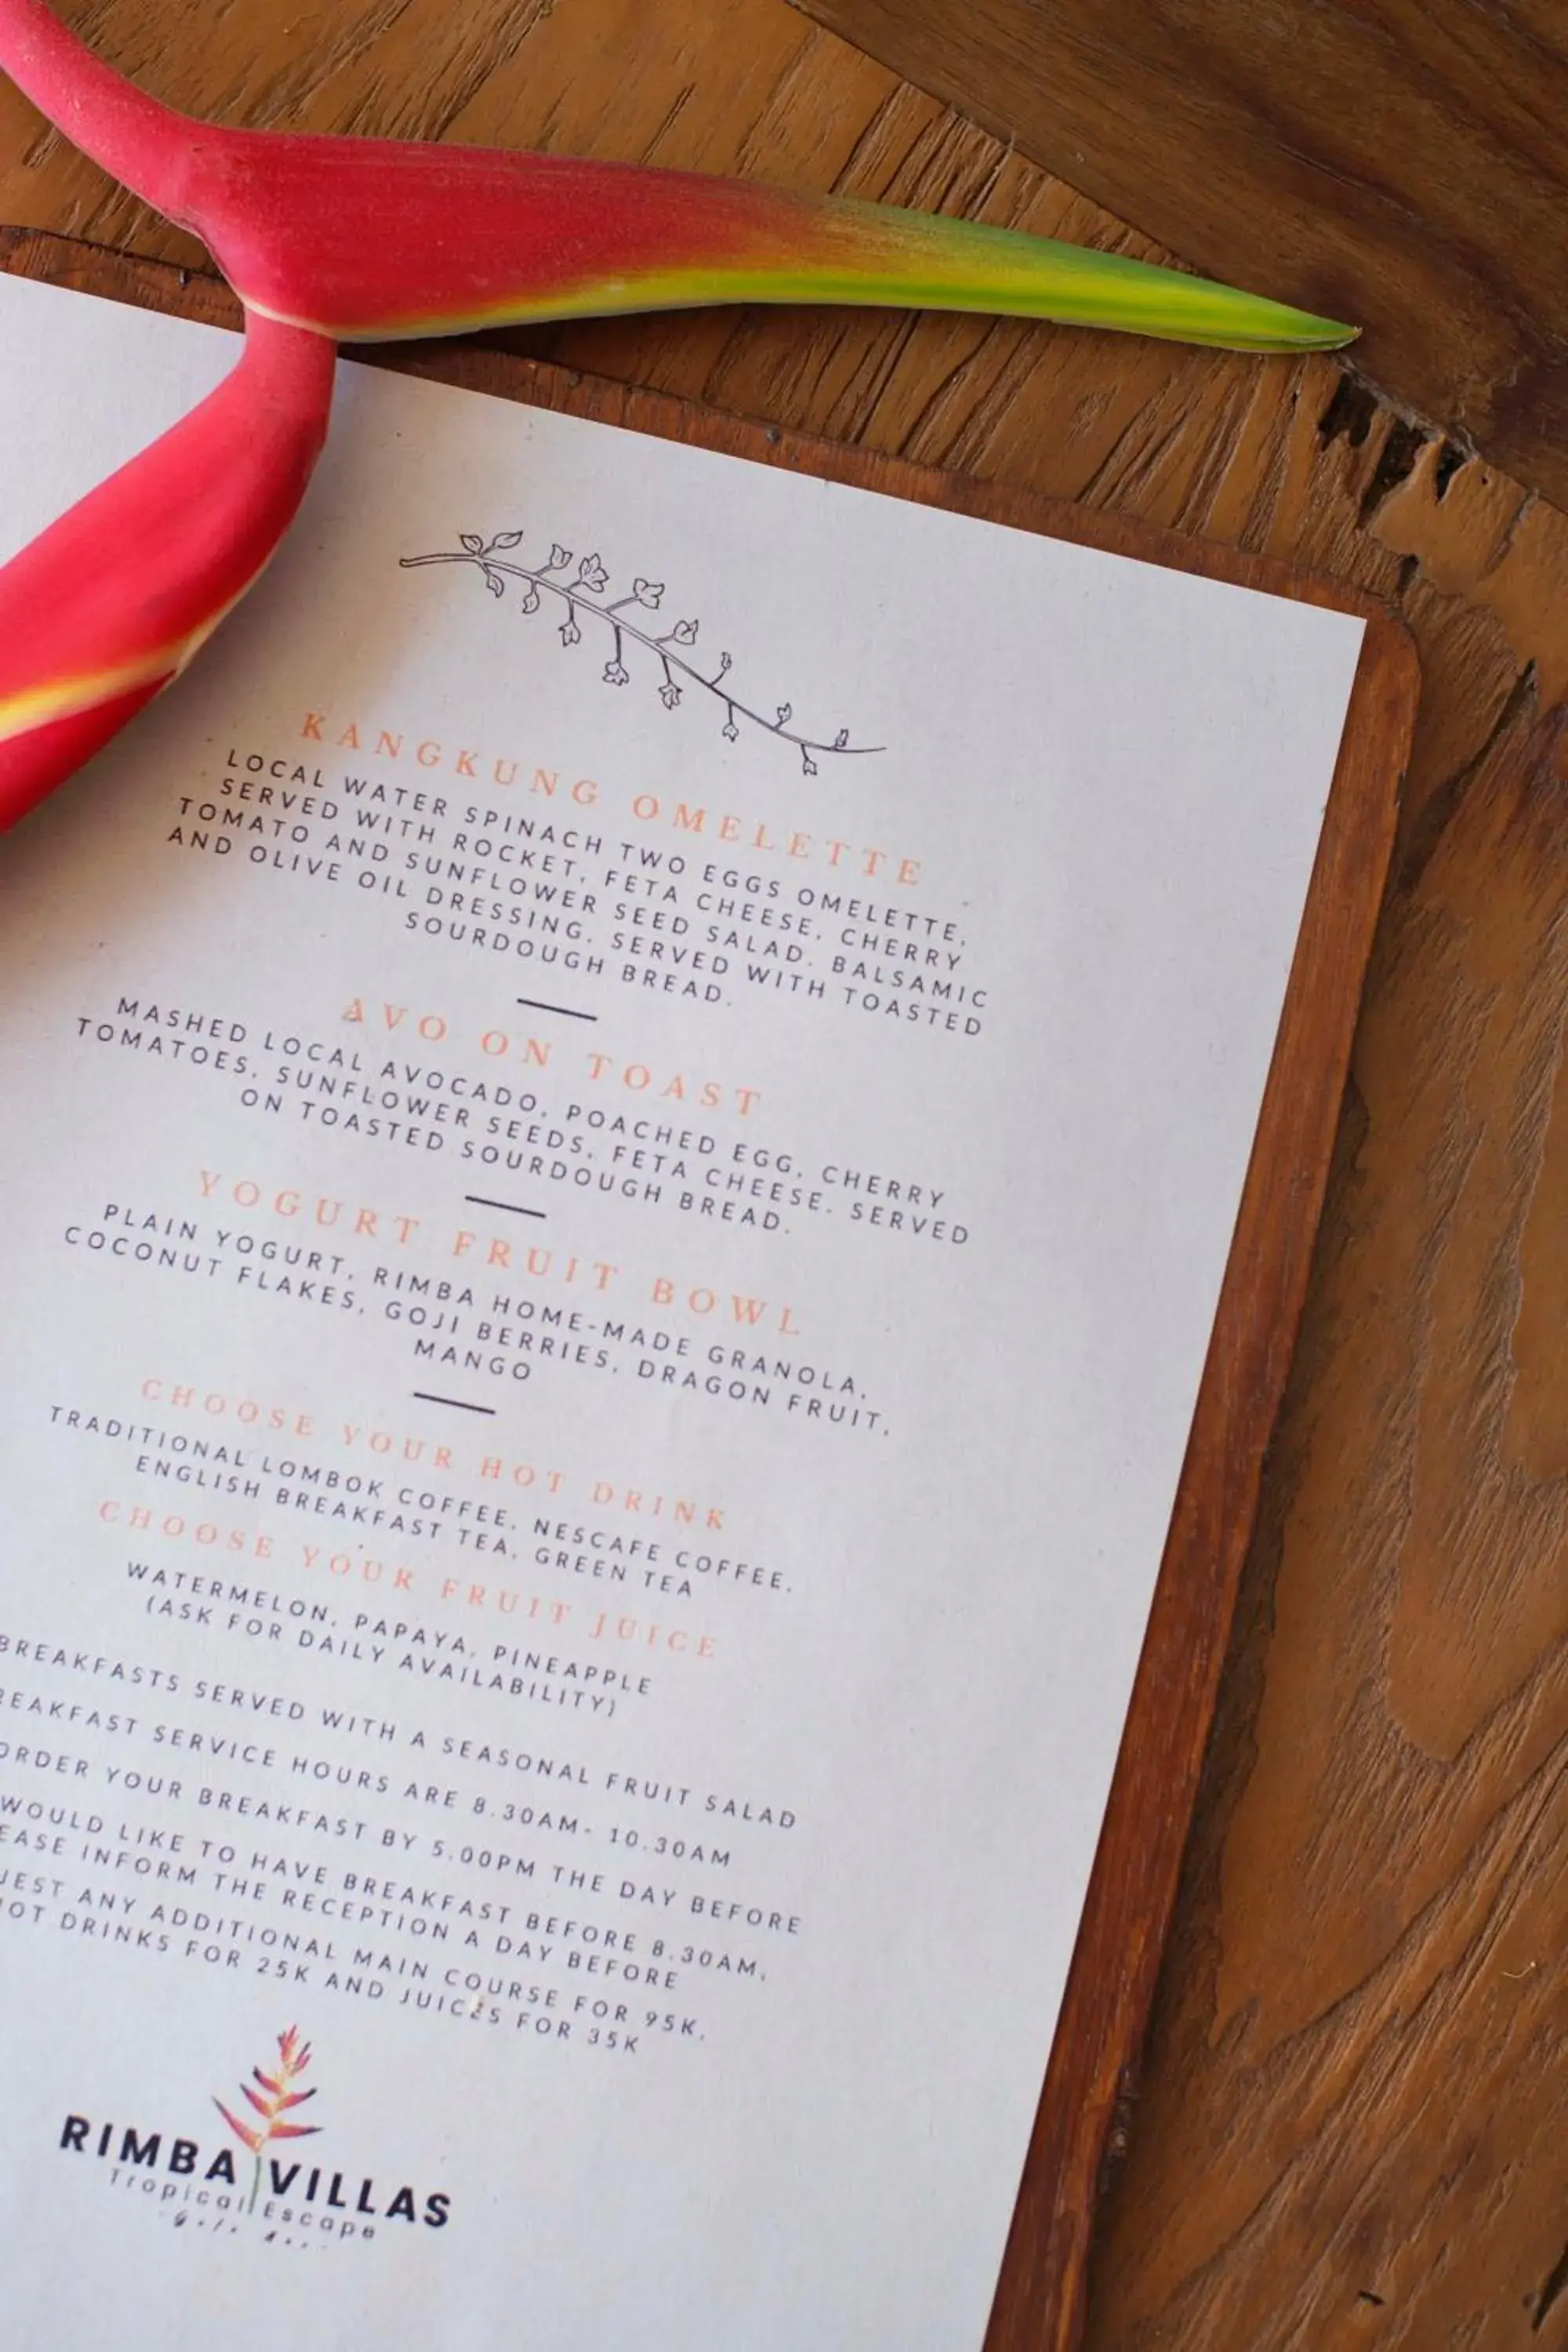 KANGKUNG OMELETTE
LOCAL WATER SPINACH TWO EGGS OMELETTE,
SERVED WITH ROCKET, FETA CHEESE, CHERRY
TOMATO AND SUNFLOWER SEED SALAD. BALSAMIC
AND OLIVE OIL DRESSING. SERVED WITH TOASTED
SOURDOUGH BREAD.
AVO ON TOAST
MASHED LOCAL AVOCADO, POACHED EGG, CHERRY
TOMATOES, SUNFLOWER SEEDS, FETA CHEESE. SERVED
ON TOASTED SOURDOUGH BREAD.
YOGURT FRUIT BOWL
PLAIN YOGURT, RIMBA HOME-MADE GRANOLA,
COCONUT FLAKES, GOJI BERRIES, DRAGON FRUIT,
MANGO
CHOOSE YOUR HOT DRINK
TRADITIONAL LOMBOK COFFEE, NESCAFE COFFEE,
ENGLISH BREAKFAST TEA, GREEN TEA
CHOOSE YOUR FRUIT JUICE
WATERMELON, PAPAYA, PINEAPPLE
(ASK FOR DAILY AVAILABILITY)
BREAKFASTS SERVED WITH A SEASONAL FRUIT SALAD
REAKFAST SERVICE HOURS ARE 8.30AM- 10.30AM
ORDER YOUR BREAKFAST BY 5.00PM THE DAY BEFORE
WOULD LIKE TO HAVE BREAKFAST BEFORE 8.30AM,
EASE INFORM THE RECEPTION A DAY BEFORE
UEST ANY ADDITIONAL MAIN COURSE FOR 95K,
HOT DRINKS FOR 25K AND JUICES FOR 35K
RIMBA VILLAS
Tropical Escape